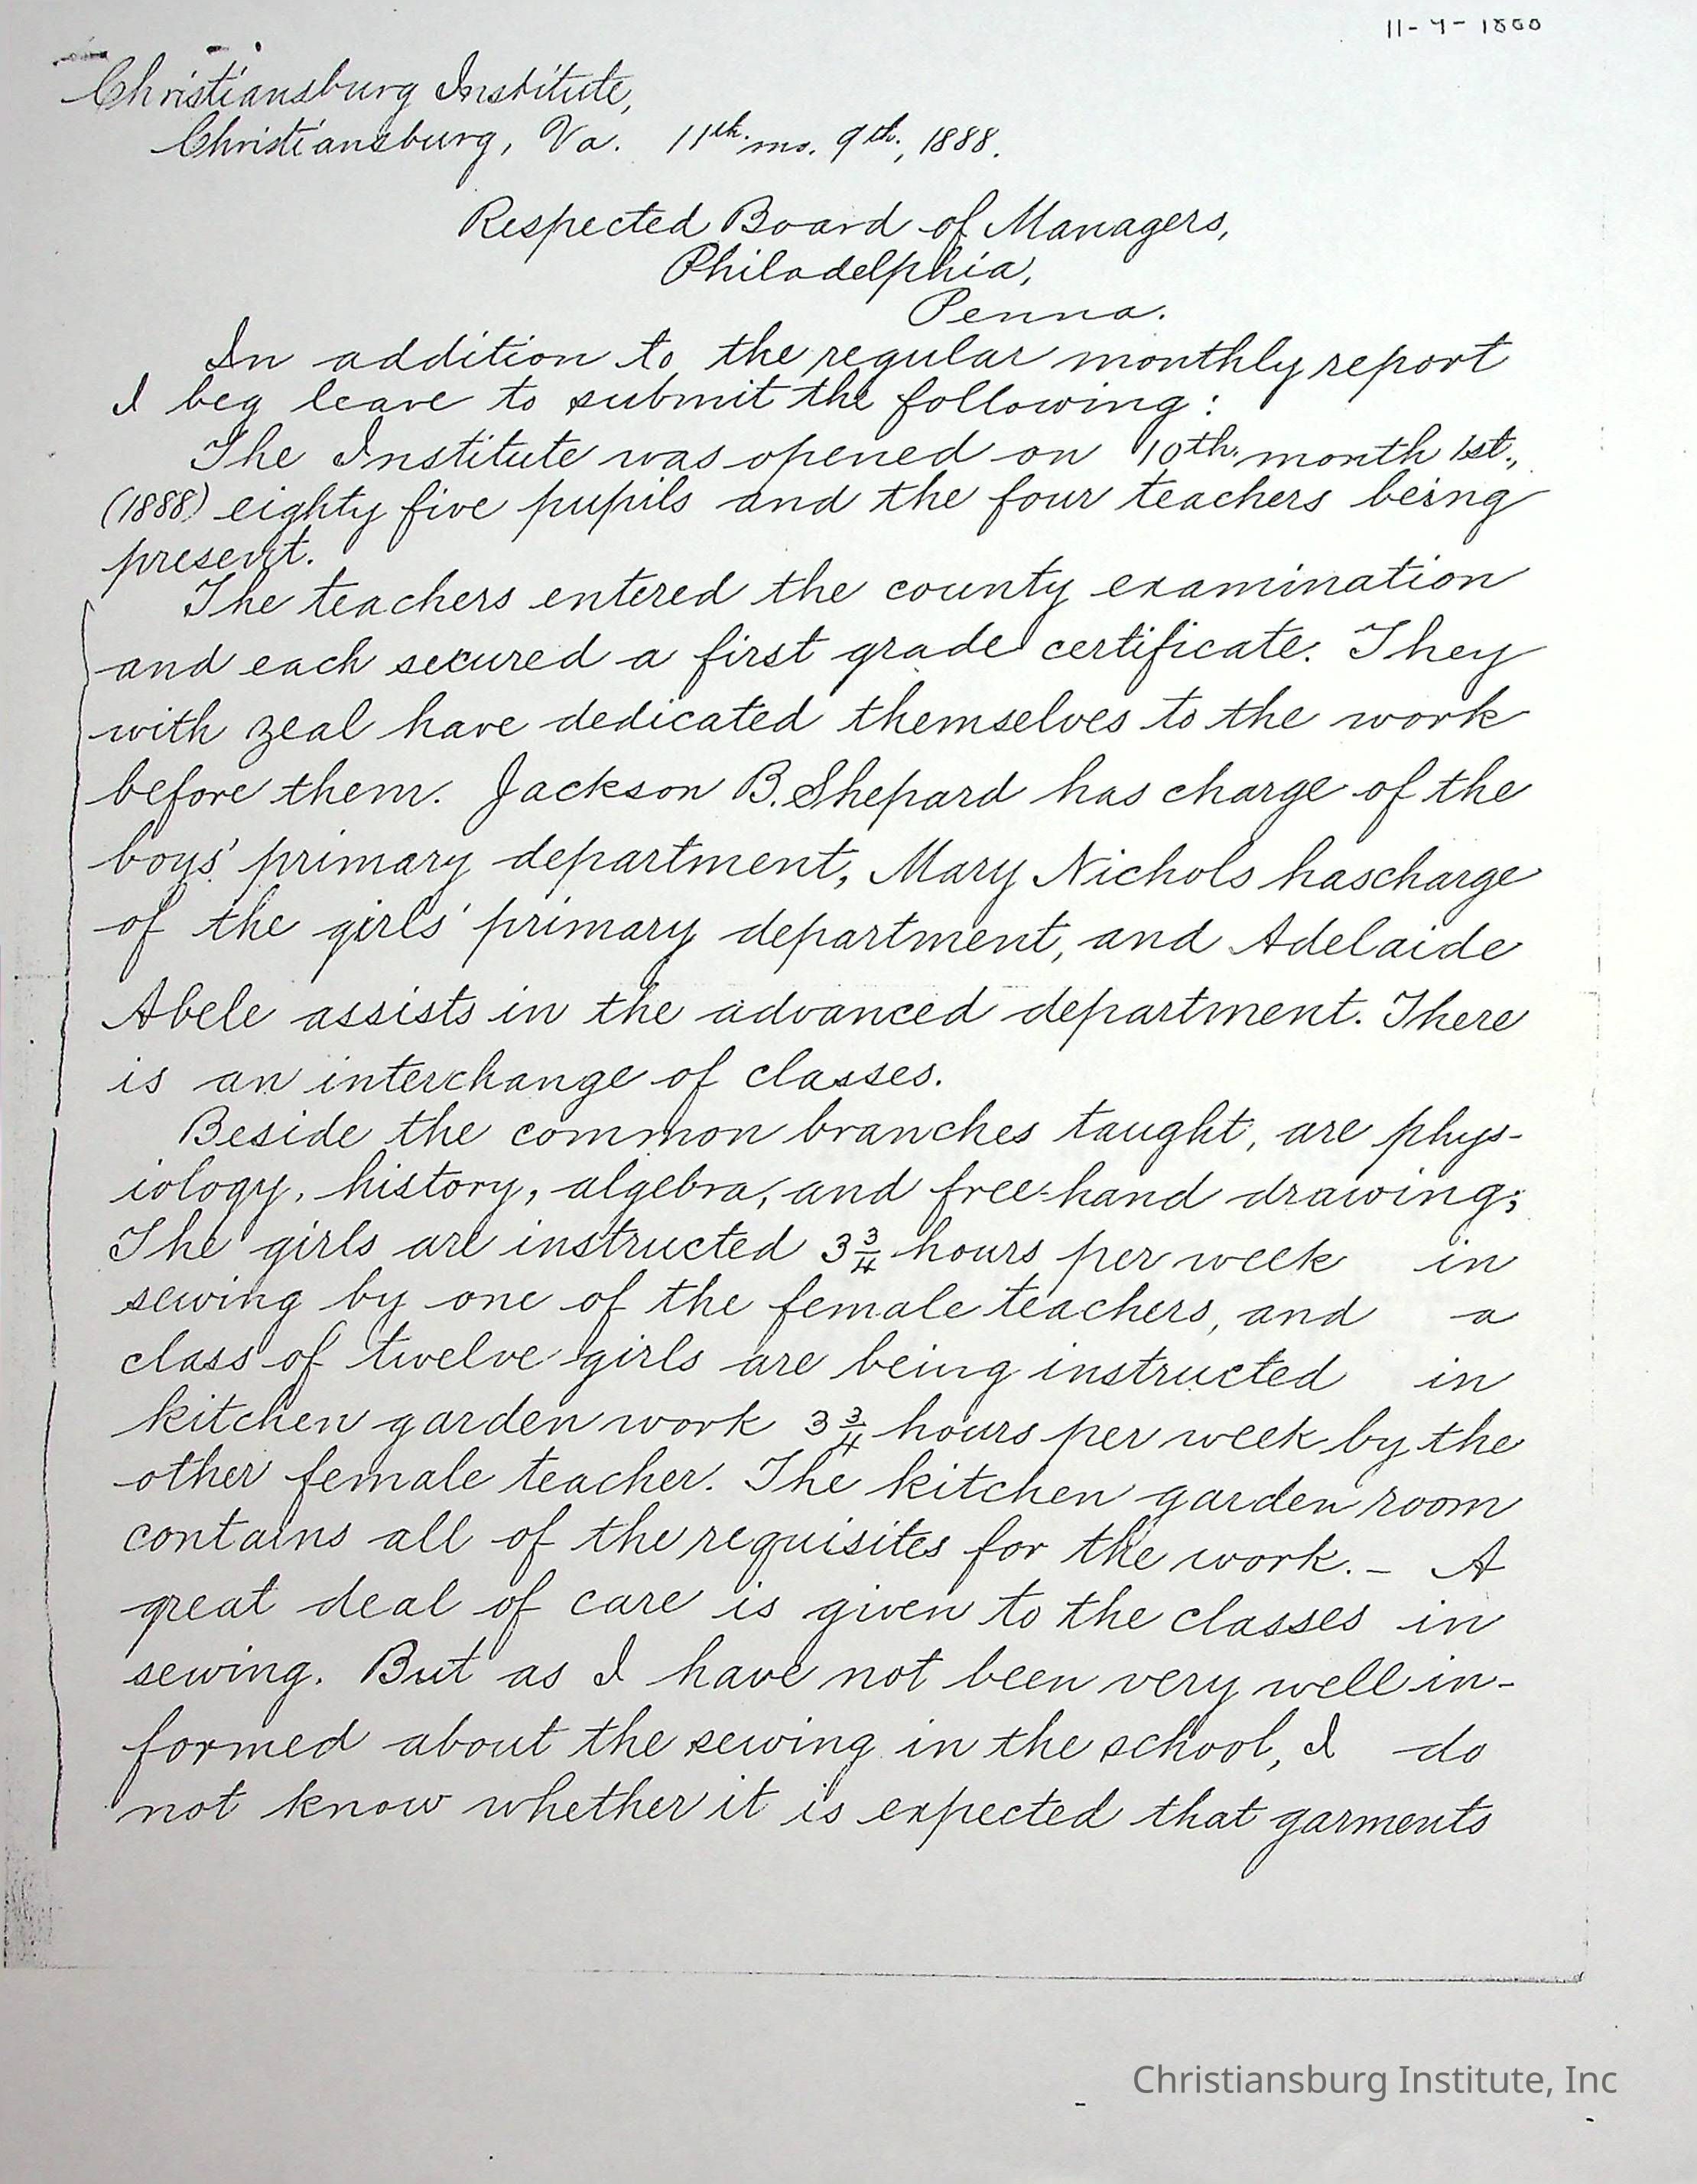 11-9-1888
Christiansburg Institute,
Christiansburg, Va. 11th. mo. 9th., 1888.
Respected Board of Managers,
Philadelphia,
Penna.
In addition to the regular monthly report
I beg leave to submit the following:
The Institute was opened on 10th. month 1st.,
(1888) eighty five pupils and the four teachers being
present.
The teachers entered the county examination
and each secured a first grade certificate. They
with zeal have dedicated themselves to the work
before them. Jackson B. Shepard has charge of the
boys' primary department, Mary Nichols has charge
of the girls' primary department, and Adelaide
Abele assists in the advanced department. There
is an interchange of classes.
Beside the common branches taught, are phys-
iology, history, algebra, and free-hand drawing;
The girls are instructed 3 3/4 hours per week in
sewing by one of the female teachers, and a
class of twelve girls are being instructed in
kitchen garden work 3 3/4 hours per week by the
other female teacher. The kitchen garden room
contains all of the requisites for the work. – A
great deal of care is given to the classes in
sewing. But as I have not been very well in-
formed about the sewing in the school, I do
not know whether it is expected that garments
Christiansburg Institute, Inc